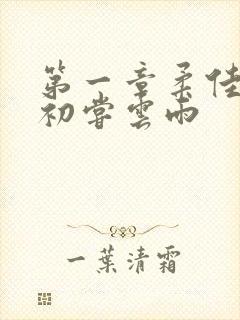 第一章柔佳
初嘗雲雨
一葉清霜